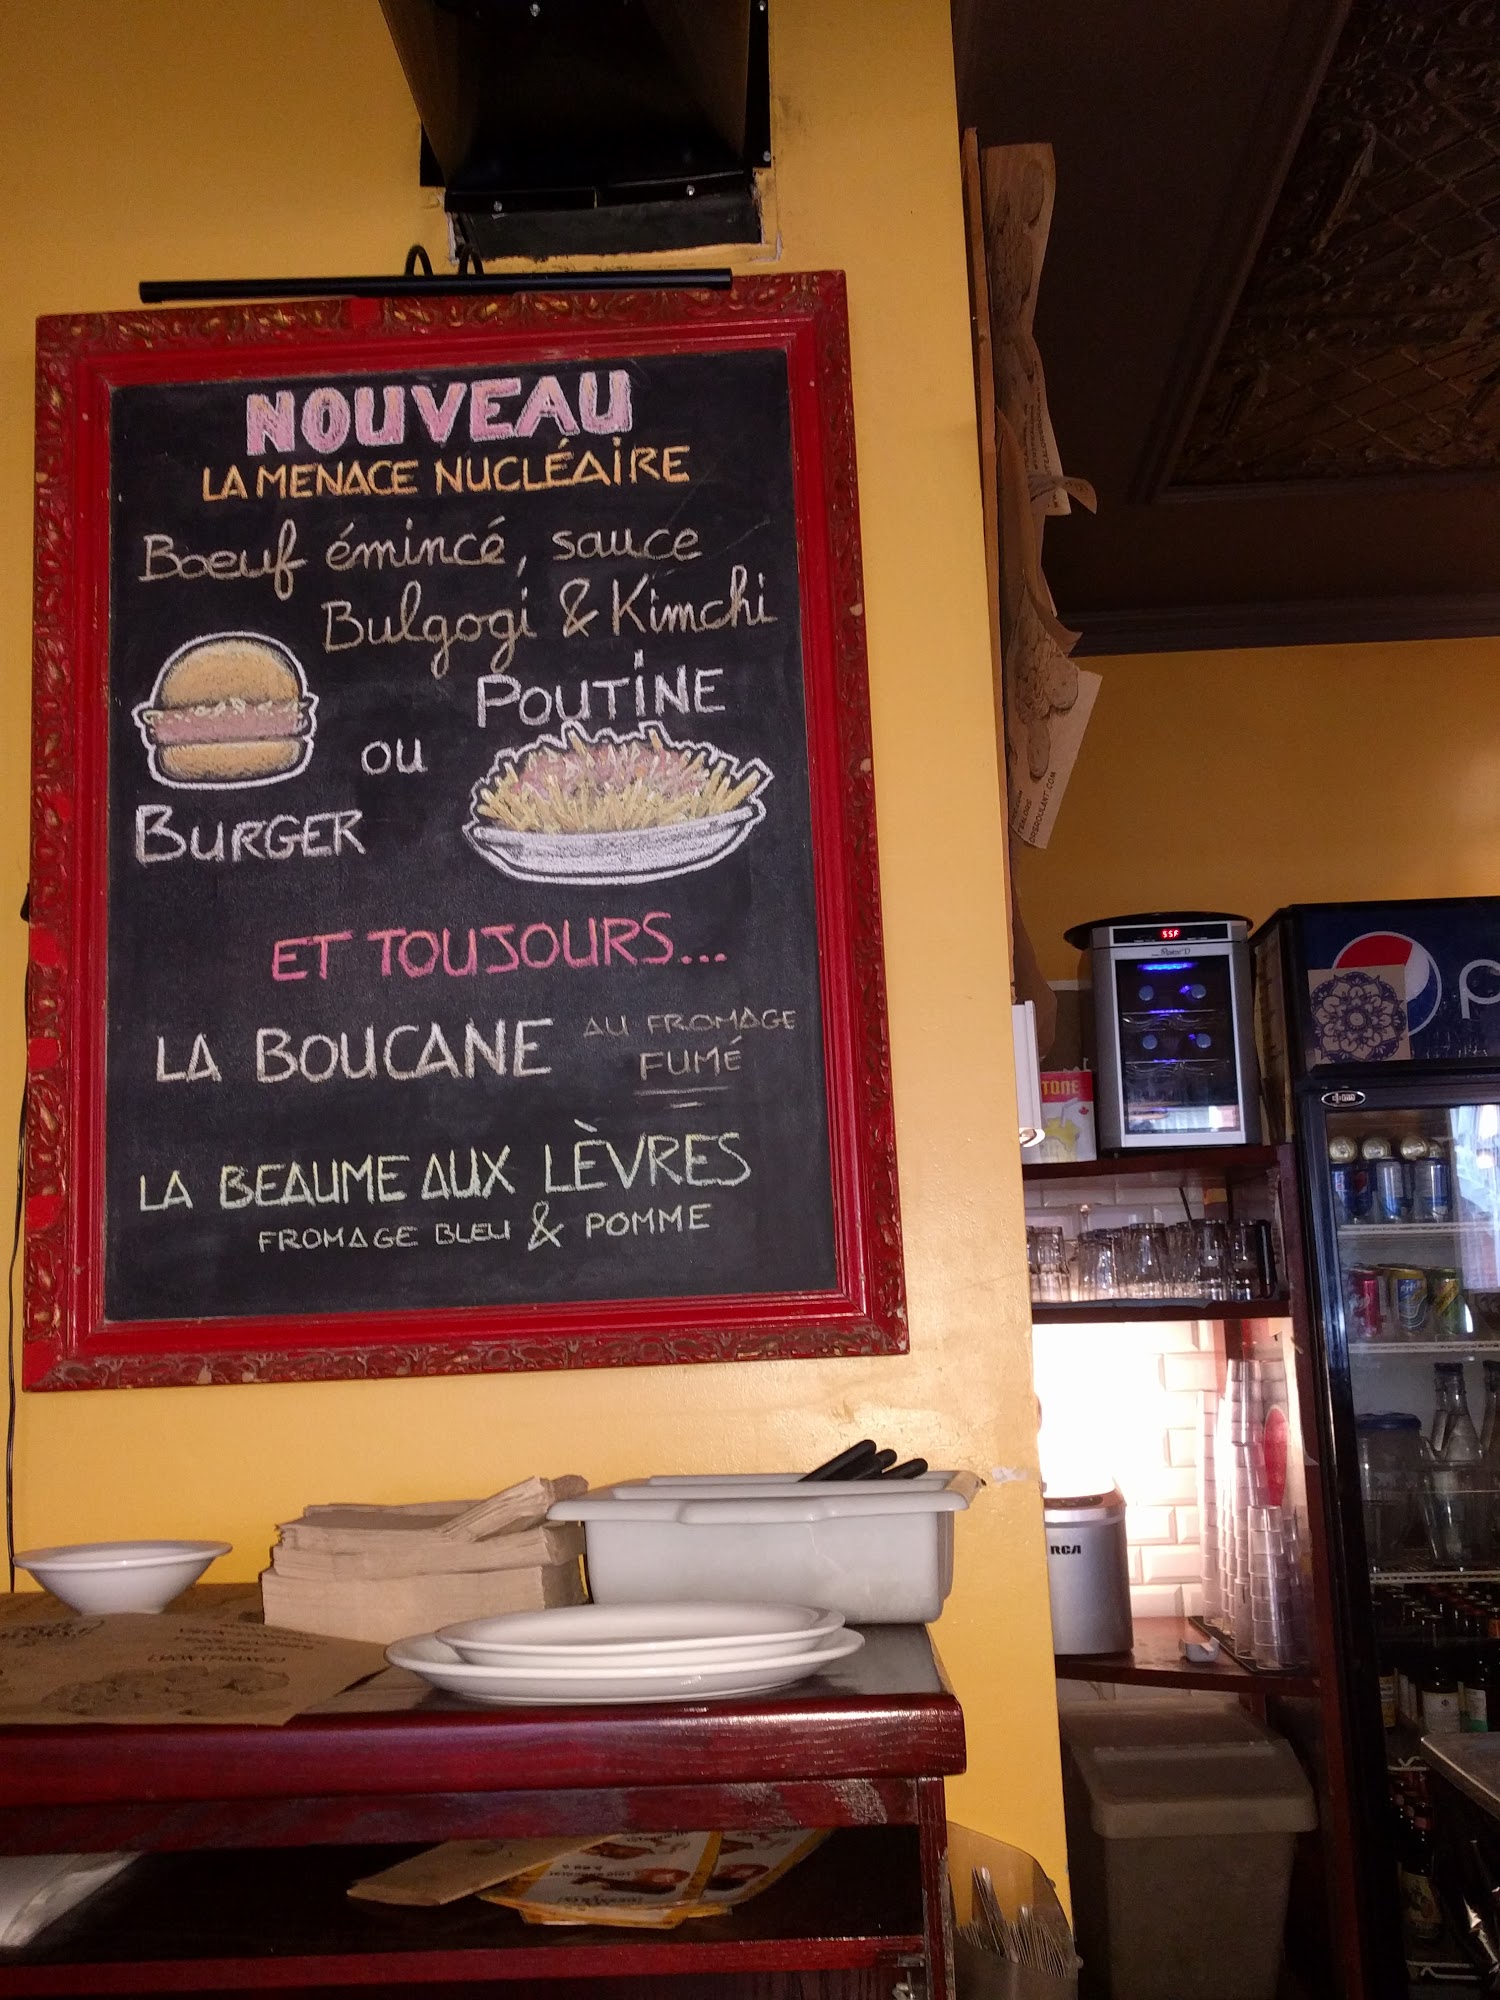 NOUVEAU
LA MENACE NUCLÉAIRE
Boeuf émincé, sauce
Bulgogi & Kimchi
POUTINE
OU
BURGER
ET TOUJOURS...
LA BOUCANE AU FROMAGE
FUMÉ
LA BEAUME AUX LÈVRES
FROMAGE BLEU & POMME
55F
TONE
RCA